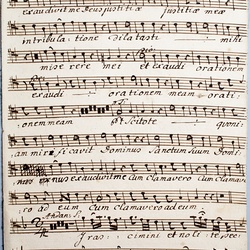 exaudivit me Deus justitiæ justitiæ meæ
in tribulatione dilatasti mihi
miserere mei et exaudi orationem
exaudi orationem meam orati:
onem meam Scitote quoni:
am mirificavit Dominus Sanctum suum Domi:
nus exaudi me cum clamavero cum clamave
ro ad eum cum clamavero ad eum
Irascimini et nolite pec: